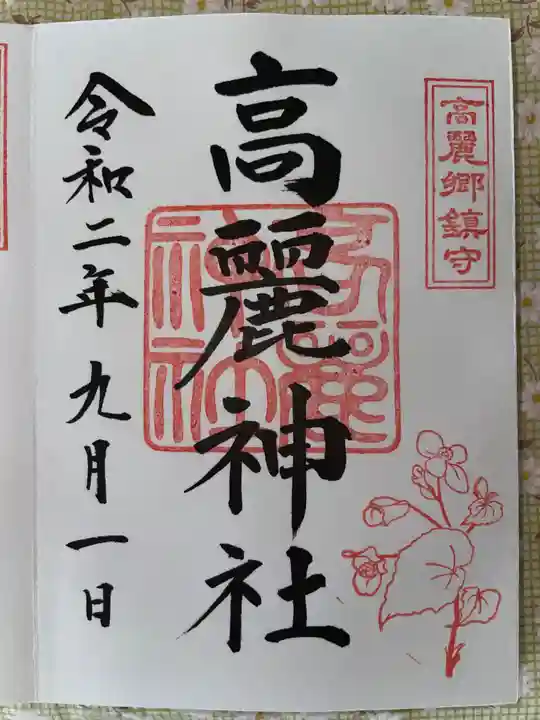 高麗郷鎮守
高麗神社
高麗神社
令和二年九月一日